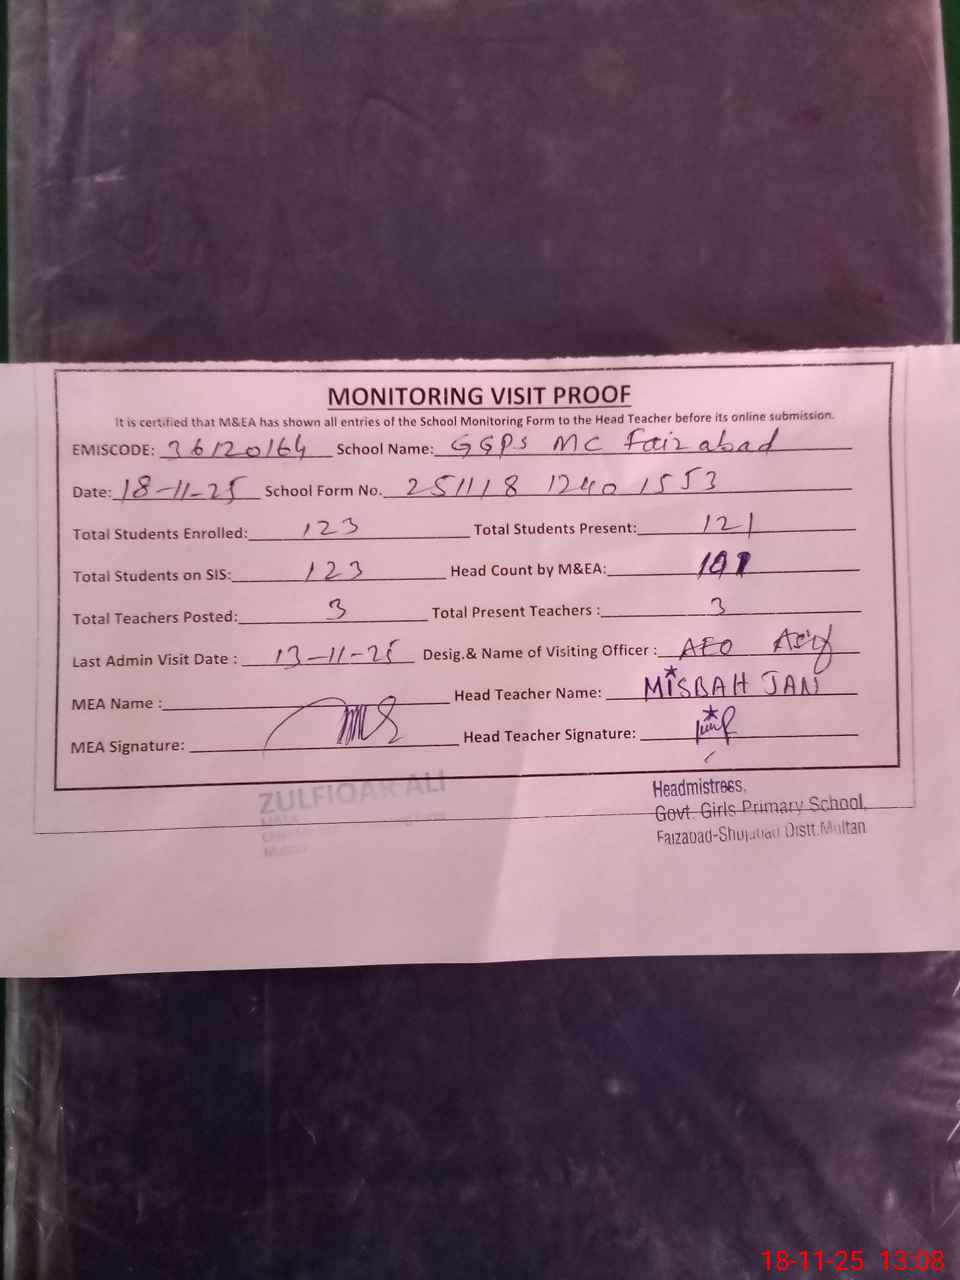 MONITORING VISIT PROOF
It is certified that M&EA has shown all entries of the School Monitoring Form to the Head Teacher before its online submission.
EMISCODE: 36120164 School Name: GGPS MC Faizabad
Date: 18-11-25 School Form No. 251118 1240 1553
Total Students Enrolled: 123 Total Students Present: 121
Total Students on SIS: 123 Head Count by M&EA:
Total Teachers Posted: 3 Total Present Teachers : 3
Last Admin Visit Date : 13-11-25 Desig.& Name of Visiting Officer : AEO Asif
MEA Name : Head Teacher Name: MISBAH JAN
MEA Signature: Head Teacher Signature:
ZULFIQAR ALI
Headmistress,
Govt. Girls Primary School,
Faizabad-Shujabad Distt.Multan
18-11-25 13:08